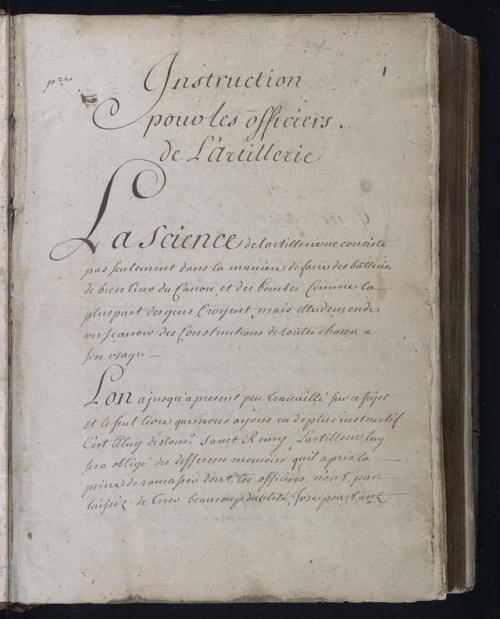 pre
1
Instruction
pour les officiers.
de L'Artillerie
La Science de lartillerie ne consiste
pas seulement dans la maniere de faire des batteries
de bien tirer du Canon et des bombes Comme la
pluspart des gens Croyent, mais elle demende
un scavoir des Constructions de toutes choses a
son usage
Lon a jusqu'a present peu travaillé sur ce sujet
et le seul livre que nous ayons eu de plus instructif
C'est Celuy de Saint Remy Lartillerie luy
sera obligé des differens memoires quil a pris la
peine de ramasser dont les officiers n'ont pas
laissés de tirer beaucoup dutilité,